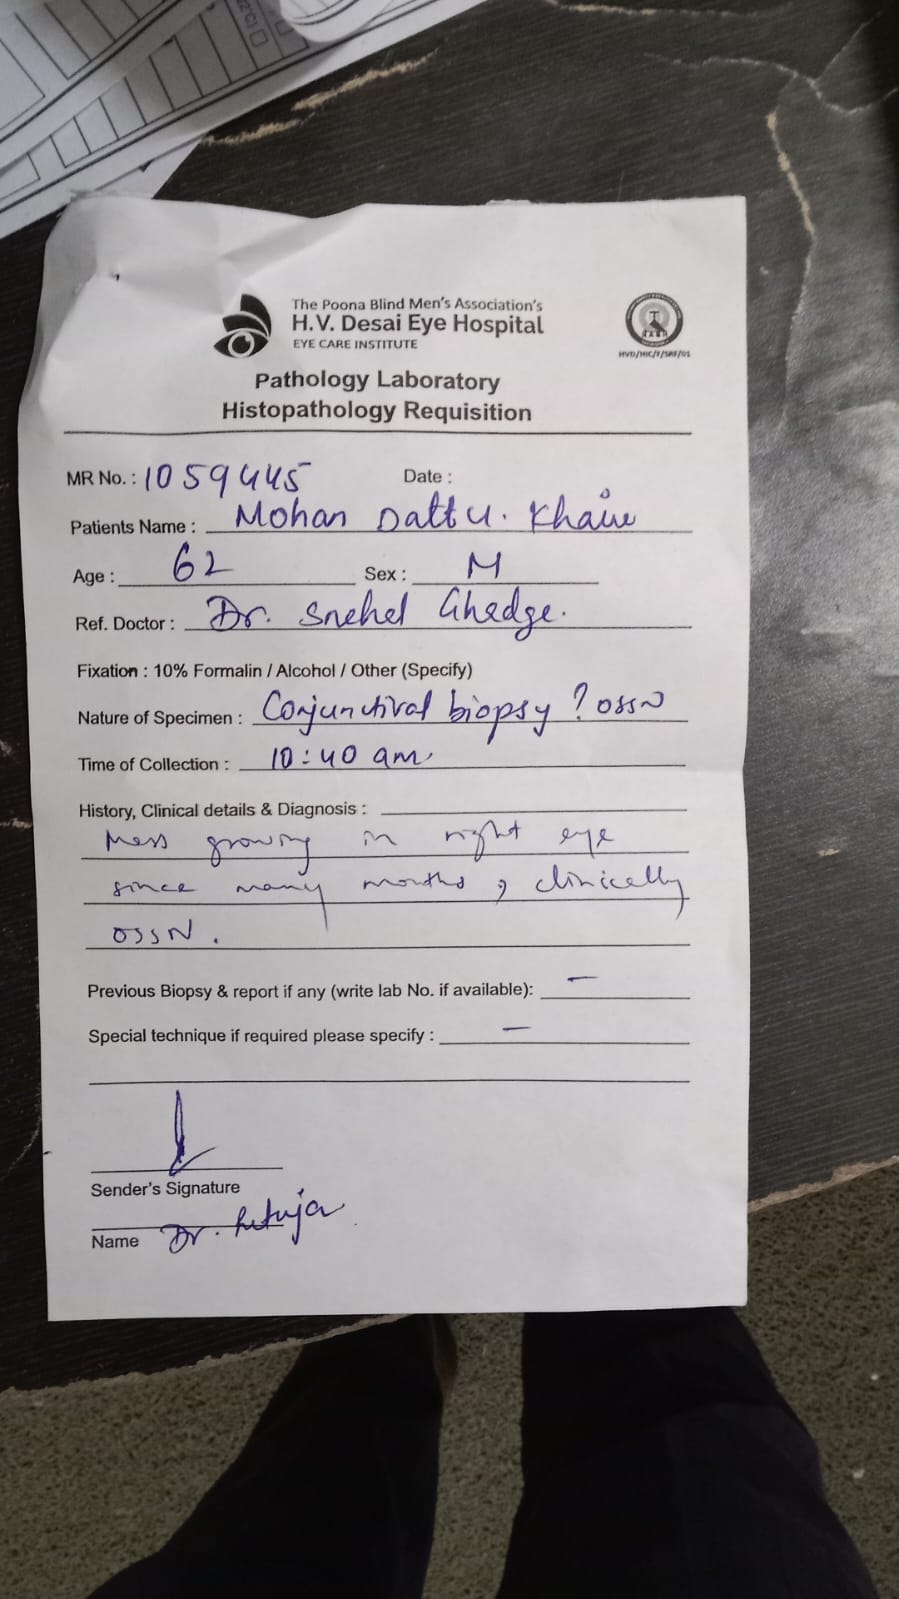 The Poona Blind Men's Association's
H.V. Desai Eye Hospital
EYE CARE INSTITUTE
HVD/HIC/F/SRF/01
Pathology Laboratory
Histopathology Requisition
MR No. : 1059445 Date :
Patients Name : Mohan Dattu. Khaire
Age : 62 Sex : M
Ref. Doctor : Dr. Snehel Ghedge.
Fixation : 10% Formalin / Alcohol / Other (Specify)
Nature of Specimen : Conjunctival biopsy ? OSSN
Time of Collection : 10:40 am.
History, Clinical details & Diagnosis :
Mass growing in right eye
since many months, clinically
OSSN.
Previous Biopsy & report if any (write lab No. if available): —
Special technique if required please specify : —
Sender's Signature
Name Dr. Rutuja